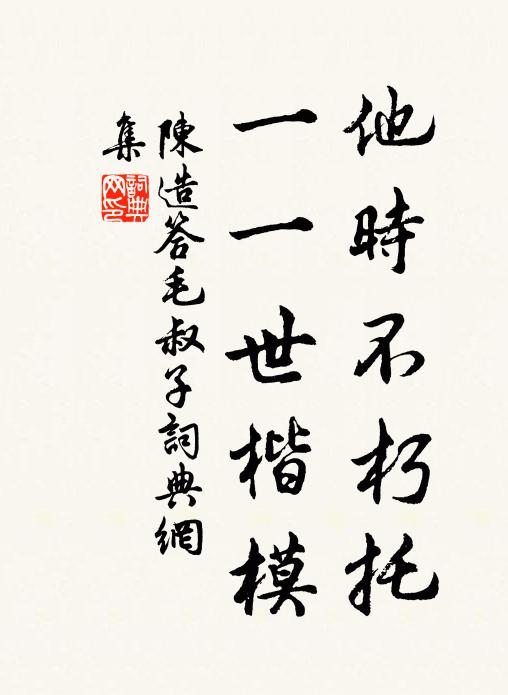 他時不朽托
一一世楷模
陳造答毛叔子詞典網
集
詞典
网印